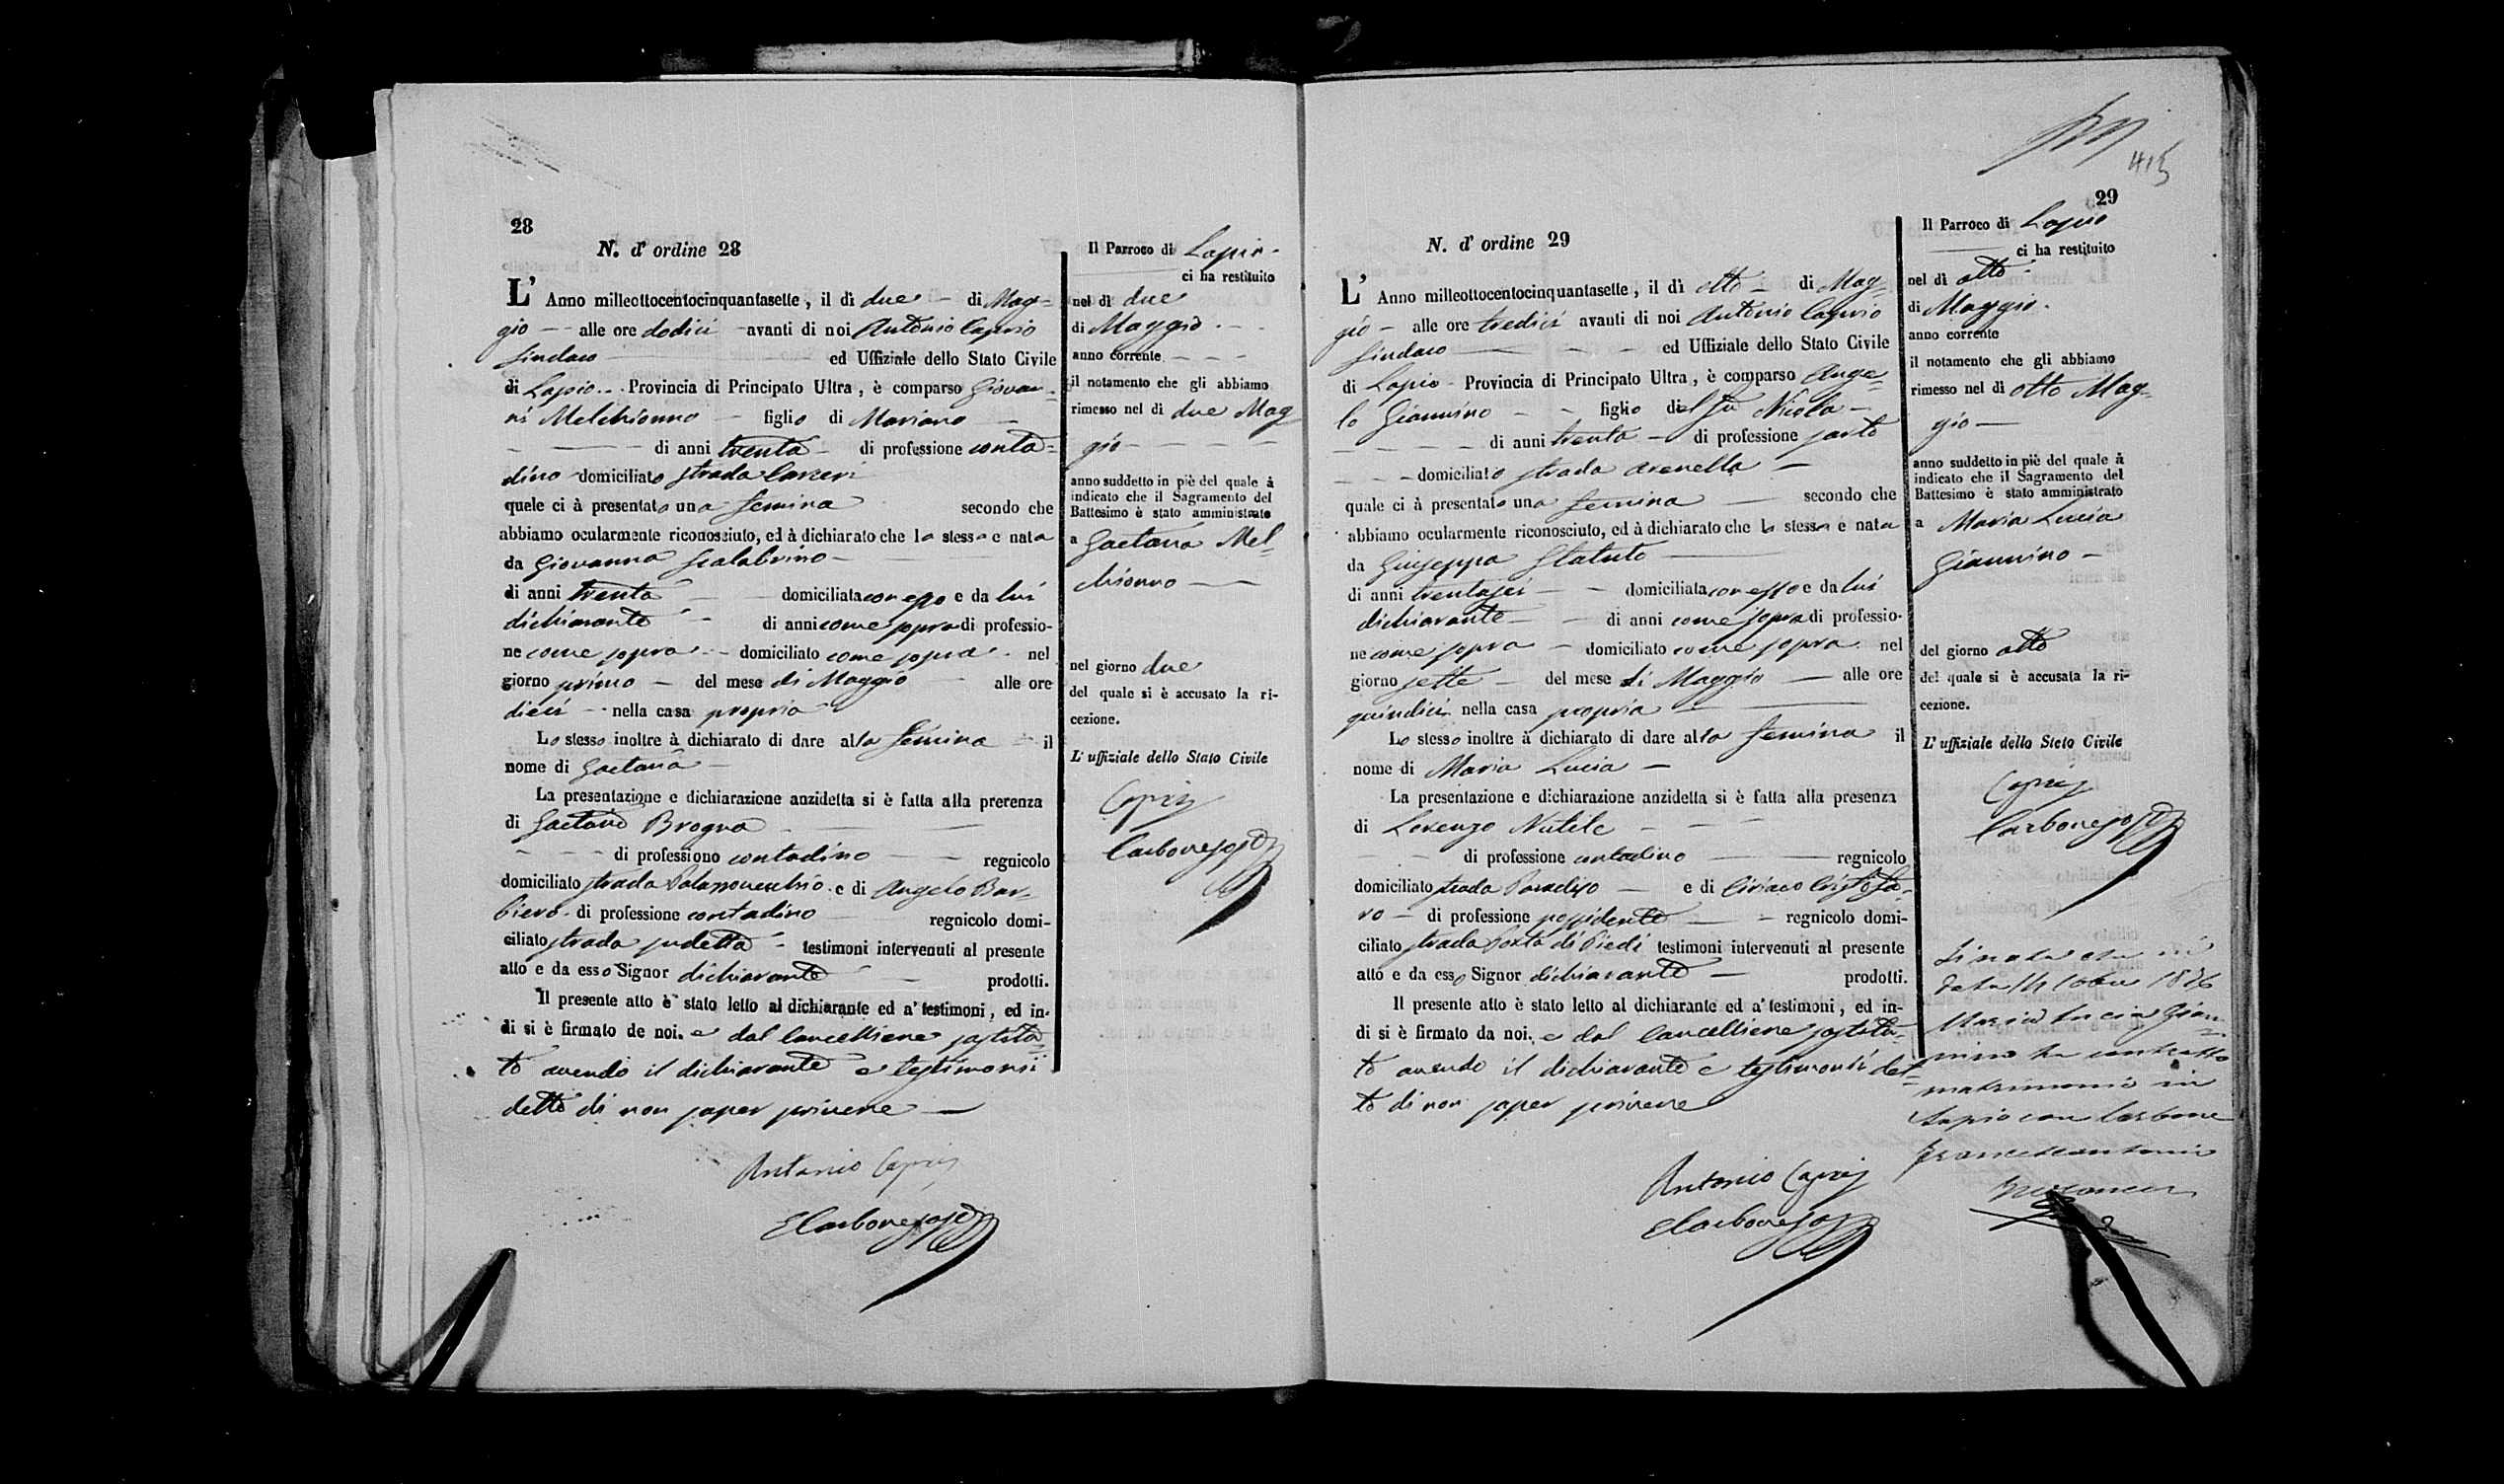 28
N. d' ordine 28
L' Anno milleottocentocinquantasette, il dì due di Mag=
gio alle ore dodici avanti di noi Antonio Caprio
Sindaco ed Uffiziale dello Stato Civile
di Lapio Provincia di Principato Ultra, è comparso Giovan=
ni Melchionno figlio di Mariano
di anni trenta di professione conta=
dino domiciliato strada Carceri
quele ci à presentato una femina secondo che
abbiamo ocularmente riconosciuto, ed à dichiarato che la stessa e nata
da Giovanna Scalabrino
di anni trenta domiciliata con esso e da lui
dichiarante di anni come sopra di professio-
ne come sopra domiciliato come sopra nel
giorno primo del mese di Maggio alle ore
dieci nella casa propria
Lo stesso inoltre à dichiarato di dare alla femina il
nome di Gaetana
La presentazione e dichiarazione anzidetta si è fatta alla prerenza
di Gaetano Brogna
di professiono contadino regnicolo
domiciliato strada Palazzovecchio e di Angelo Bar=
biero di professione contadino regnicolo domi-
ciliato strada sudetta testimoni intervenuti al presente
atto e da esso Signor dichiarante prodotti.
Il presente atto è stato letto al dichiarante ed a' testimoni, ed in-
di si è firmato de noi. e dal Cancelliere sostitu=
to avendo il dichiarante e testimonii
detto di non saper scrivere
Antonio Caprio
E Carbone sosto
Il Parroco di Lapio
ci ha restituito
nel dì due
di Maggio
anno corrente
il notamento che gli abbiamo
rimesso nel di due Mag
gio
anno suddetto in piè del quale à
indicato che il Sagramento del
Battesimo è stato amministrato
a Gaetana Mel=
chionno
nel giorno due
del quale si è accusato la ri-
cezione.
L' uffiziale dello Stato Civile
Caprio
Carbone sosto
415
29
N. d' ordine 29
L' Anno milleottocentocinquantasette, il dì otto di Mag=
gio alle ore tredici avanti di noi Antonio Caprio
Sindaco ed Uffiziale dello Stato Civile
di Lapio Provincia di Principato Ultra, è comparso Ange=
lo Giannino figlio del fu Nicola
di anni trenta di professione sarto
domiciliato strada arenella
quale ci à presentato una femina secondo che
abbiamo ocularmente riconosciuto, ed à dichiarato che la stessa è nata
da Giuseppa Statuto
di anni trentasei domiciliata con esso e da lui
dichiarante di anni come sopra di professio-
ne come sopra domiciliato come sopra nel
giorno sette del mese di Maggio alle ore
quindici nella casa propria
Lo stesso inoltre à dichiarato di dare alla femina il
nome di Maria Lucia
La presentazione e dichiarazione anzidetta si è fatta alla presenza
di Lorenzo Nutile
di professione contadino regnicolo
domiciliato strada Paradiso e di Ciriaco Cristofa=
ro di professione possidente regnicolo domi-
ciliato strada Porta di Piedi testimoni intervenuti al presente
atto e da esso Signor dichiarante prodotti.
Il presente atto è stato letto al dichiarante ed a' testimoni, ed in-
di si è firmato da noi. e dal Cancelliere sostitu=
to avendo il dichiarante e testimonii det=
to di non saper scrivere
Antonio Caprio
E Carbone sosto
Il Parroco di Lapio
ci ha restituito
nel dì otto
di Maggio
anno corrente
il notamento che gli abbiamo
rimesso nel dì otto Mag=
gio
anno suddetto in piè del quale à
indicato che il Sagramento del
Battesimo è stato amministrato
a Maria Lucia
Giannino
del giorno otto
del quale si è accusata la ri-
cezione.
L' uffiziale dello Stato Civile
Caprio
Carbone sosto
in
data 14
Maria Lucia Gian=
nino ha contratto
matrimonio in
Lapio con Carbone
Francescantonio